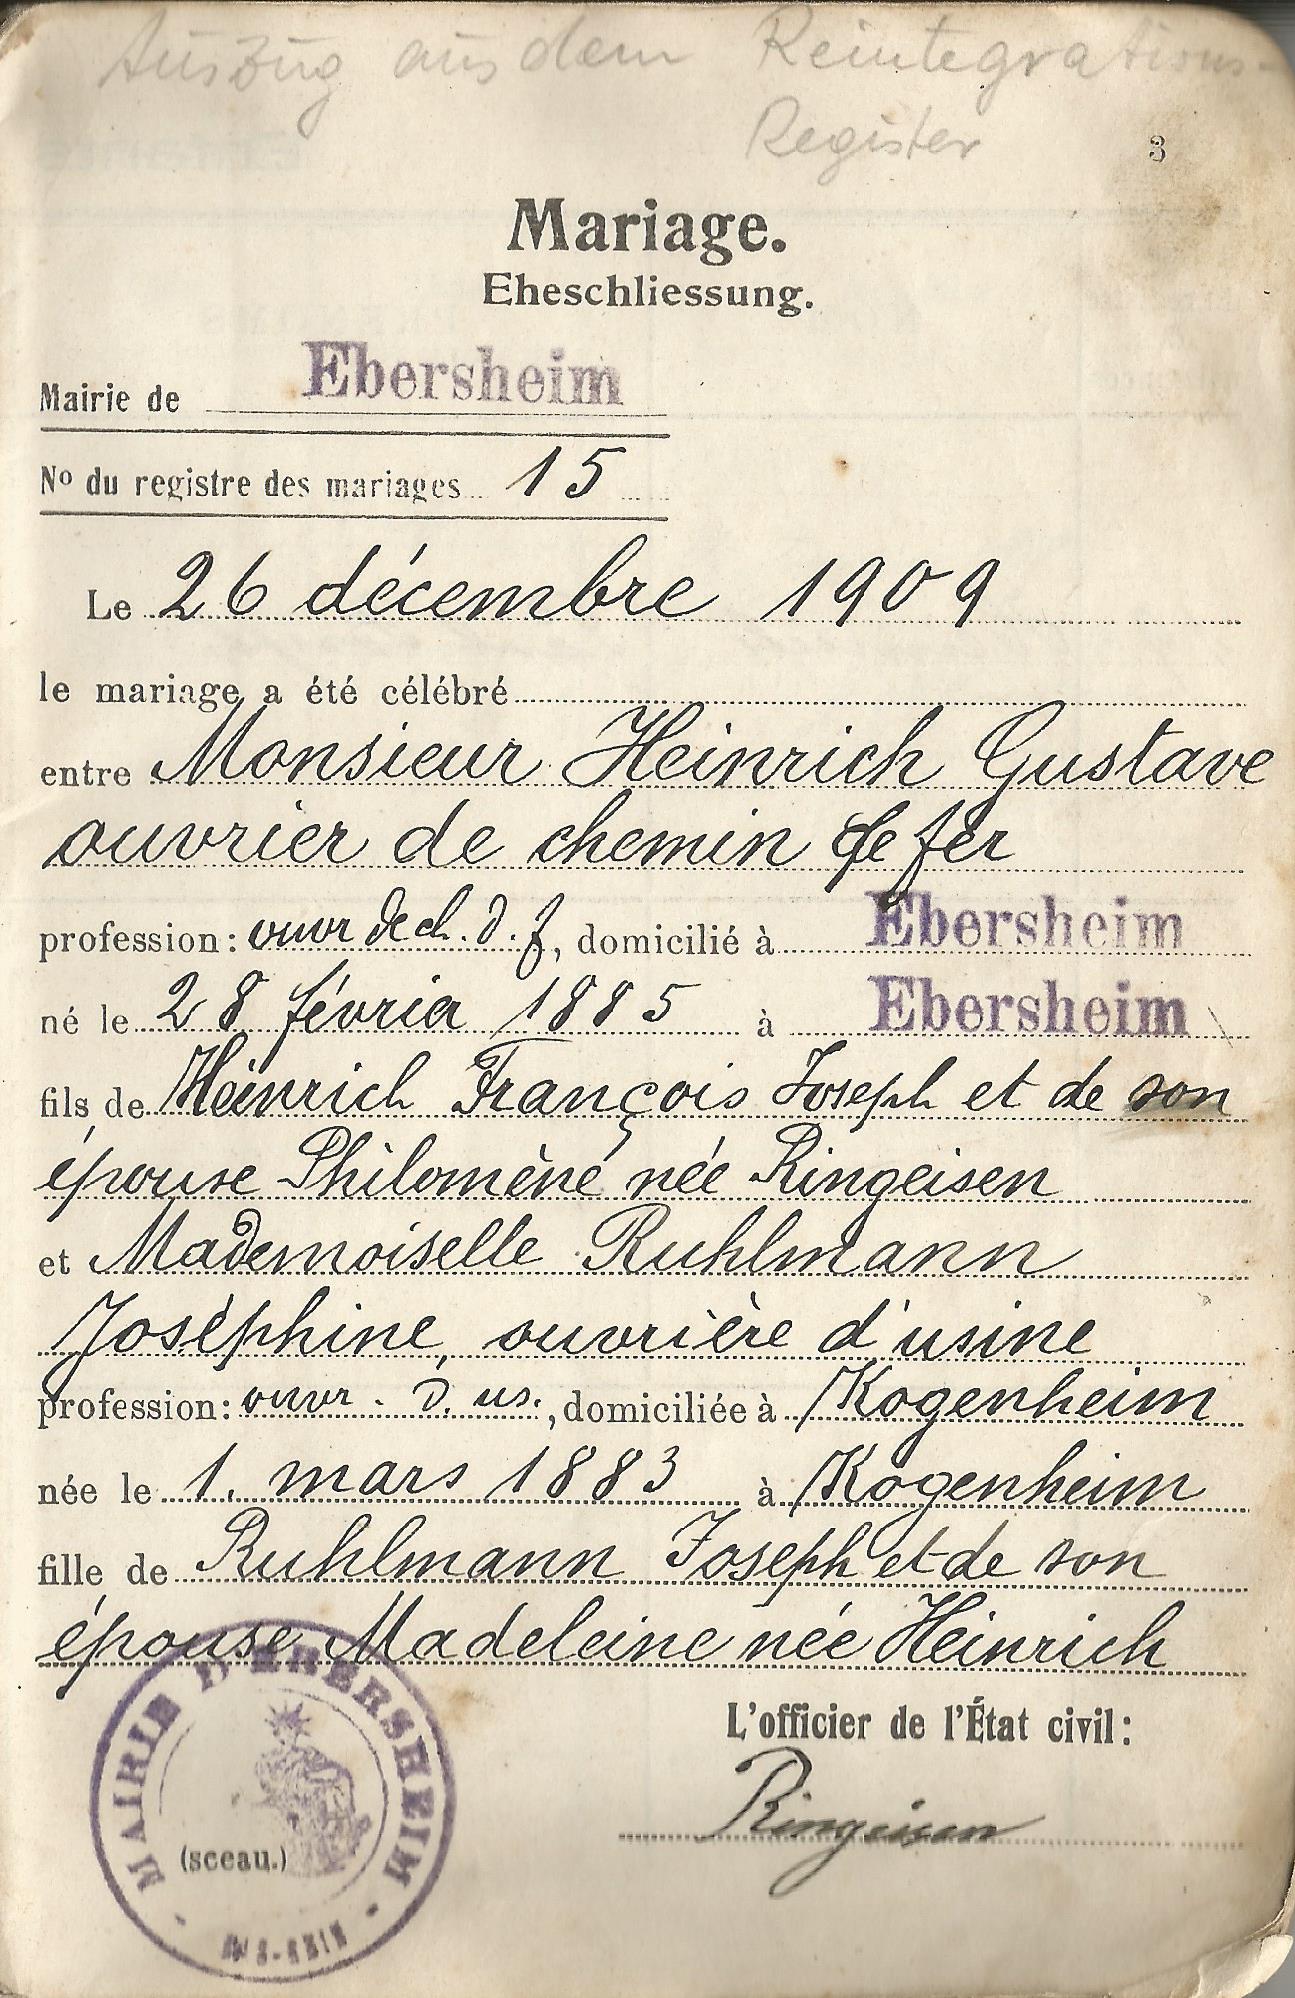 Auszug aus dem Reintegrations-
Register
3
Mariage.
Eheschliessung.
Mairie de Ebersheim
No du registre des mariages 15
Le 26 décembre 1909
le mariage a été célébré
entre Monsieur Heinrich Gustave
ouvrier de chemin de fer
profession: ouvr de ch. d. f, domicilié à Ebersheim
né le 28 février 1885 à Ebersheim
fils de Heinrich François Joseph et de son
épouse Philomène née Ringeisen
et Mademoiselle Ruhlmann
Joséphine, ouvrière d'usine
profession: ouvr. d. us., domiciliée à Kogenheim
née le 1. mars 1883 à Kogenheim
fille de Ruhlmann Joseph et de son
épouse Madeleine née Heinrich
L'officier de l'État civil:
Ringeisen
MAIRIE D'EBERSHEIM
(sceau.)
BAS-RHIN